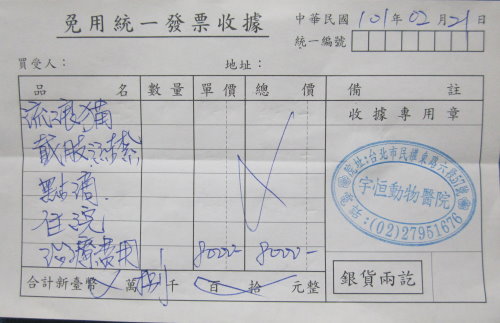 免用統一發票收據
中華民國 101年 02月 21日
統一編號
買受人： 地址：
品名 數量 單價 總價 備註
流浪貓
截肢結紮
點滴
住院
治療費用 8000- 8000-
收據專用章
院址:台北市民權東路六段37號
宇恒動物醫院
電話:(02)27951676
合計新臺幣 萬 捌 千 百 拾 元整
銀貨兩訖